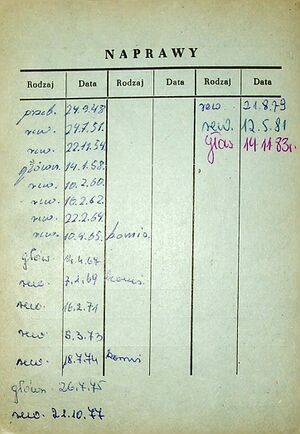 NAPRAWY
Rodzaj Data Rodzaj Data Rodzaj Data
przeb. 24.9.48
rew. 24.7.51.
rew. 22.11.54
główn. 14.1.58.
rew. 10.2.60.
rew. 16.2.62.
rew. 22.2.64.
rew. 10.9.65. komis.
głów. 4.67
rew. 7.2.69
rew. 16.2.71
rew. 8.3.73
rew. 18.7.74 komis
główn. 26.7.75
rew. 21.10.77
rew. 21.8.79
rew. 12.5.81
głów 14.11.83r.